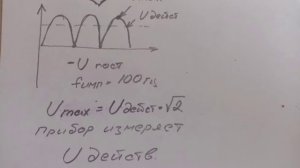 U действ
~U пост
fимп = 100 Гц
Umax = Uдейст • √2
прибор измеряет
U действ.